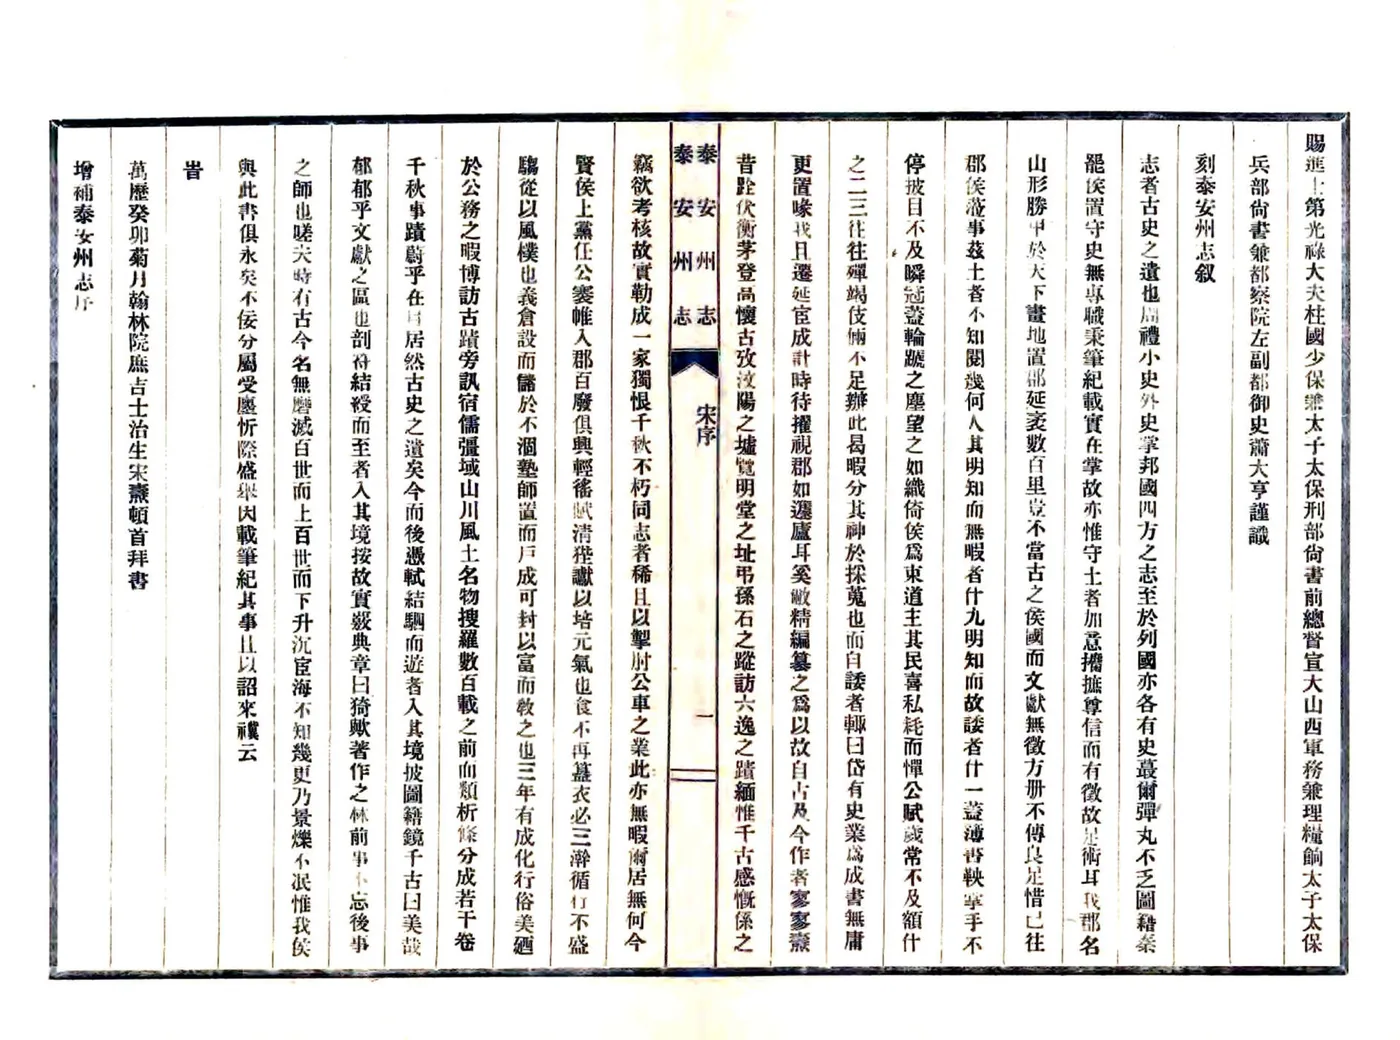 賜進士第光祿大夫柱國少保兼太子太保刑部尙書前總督宣大山西軍務兼理糧餉太子太保
兵部尙書兼都察院左副都御史蕭大亨謹識
刻泰安州志叙
志者古史之遺也周禮小史外史掌邦國四方之志至於列國亦各有史蕞爾彈丸不乏圖籍秦
罷侯置守史無專職秉筆紀載實在掌故亦惟守土者加意攟摭尊信而有徵故足術耳我郡名
山形勝甲於天下畫地置郡延袤數百里豈不當古之侯國而文獻無徵方册不傳良足惜已往
郡侯蒞事茲土者不知閱幾何人其明知而無暇者什九明知而故諉者什一蓋薄書鞅掌手不
停披目不及瞬冠蓋輪蹏之塵望之如織倚侯爲東道主其民喜私耗而憚公賦歲常不及額什
之二三往往殫竭伎倆不足辦此曷暇分其神於採蒐也而自諉者輒曰岱有史業爲成書無庸
更置喙我且遷延宦成計時待擢視郡如蘧廬耳奚敝精編纂之爲以故自古及今作者寥寥燾
昔跧伏衡茅登高懷古攷汶陽之墟覽明堂之址弔孫石之蹤訪六逸之蹟緬惟千古感慨係之
泰安州志
泰安州志
宋序
一
竊欲考核故實勒成一家獨恨千秋不朽同志者稀且以掣肘公車之業此亦無暇爾居無何今
賢侯上黨任公褰帷入郡百廢俱興輕徭賦清獄讞以培元氣也食不再簋衣必三澣循行不盛
騶從以風樸也義倉設而儲於不涸塾師置而戶成可封以富而敎之也三年有成化行俗美廼
於公務之暇博訪古蹟旁訊宿儒彊域山川風土名物搜羅數百載之前而類析條分成若干卷
千秋事蹟蔚乎在目居然古史之遺矣今而後憑軾結駟而遊者入其境披圖籍鏡千古曰美哉
郁郁乎文獻之區也剖符結綬而至者入其境按故實裁典章曰猗歟著作之林前事不忘後事
之師也嗟夫時有古今名無磨滅百世而上百世而下升沉宦海不知幾更乃景爍不泯惟我侯
與此書俱永矣不佞分屬受廛忻際盛舉因載筆紀其事且以詔來禩云
旹
萬歷癸卯菊月翰林院庶吉士治生宋燾頓首拜書
增補泰安州志序